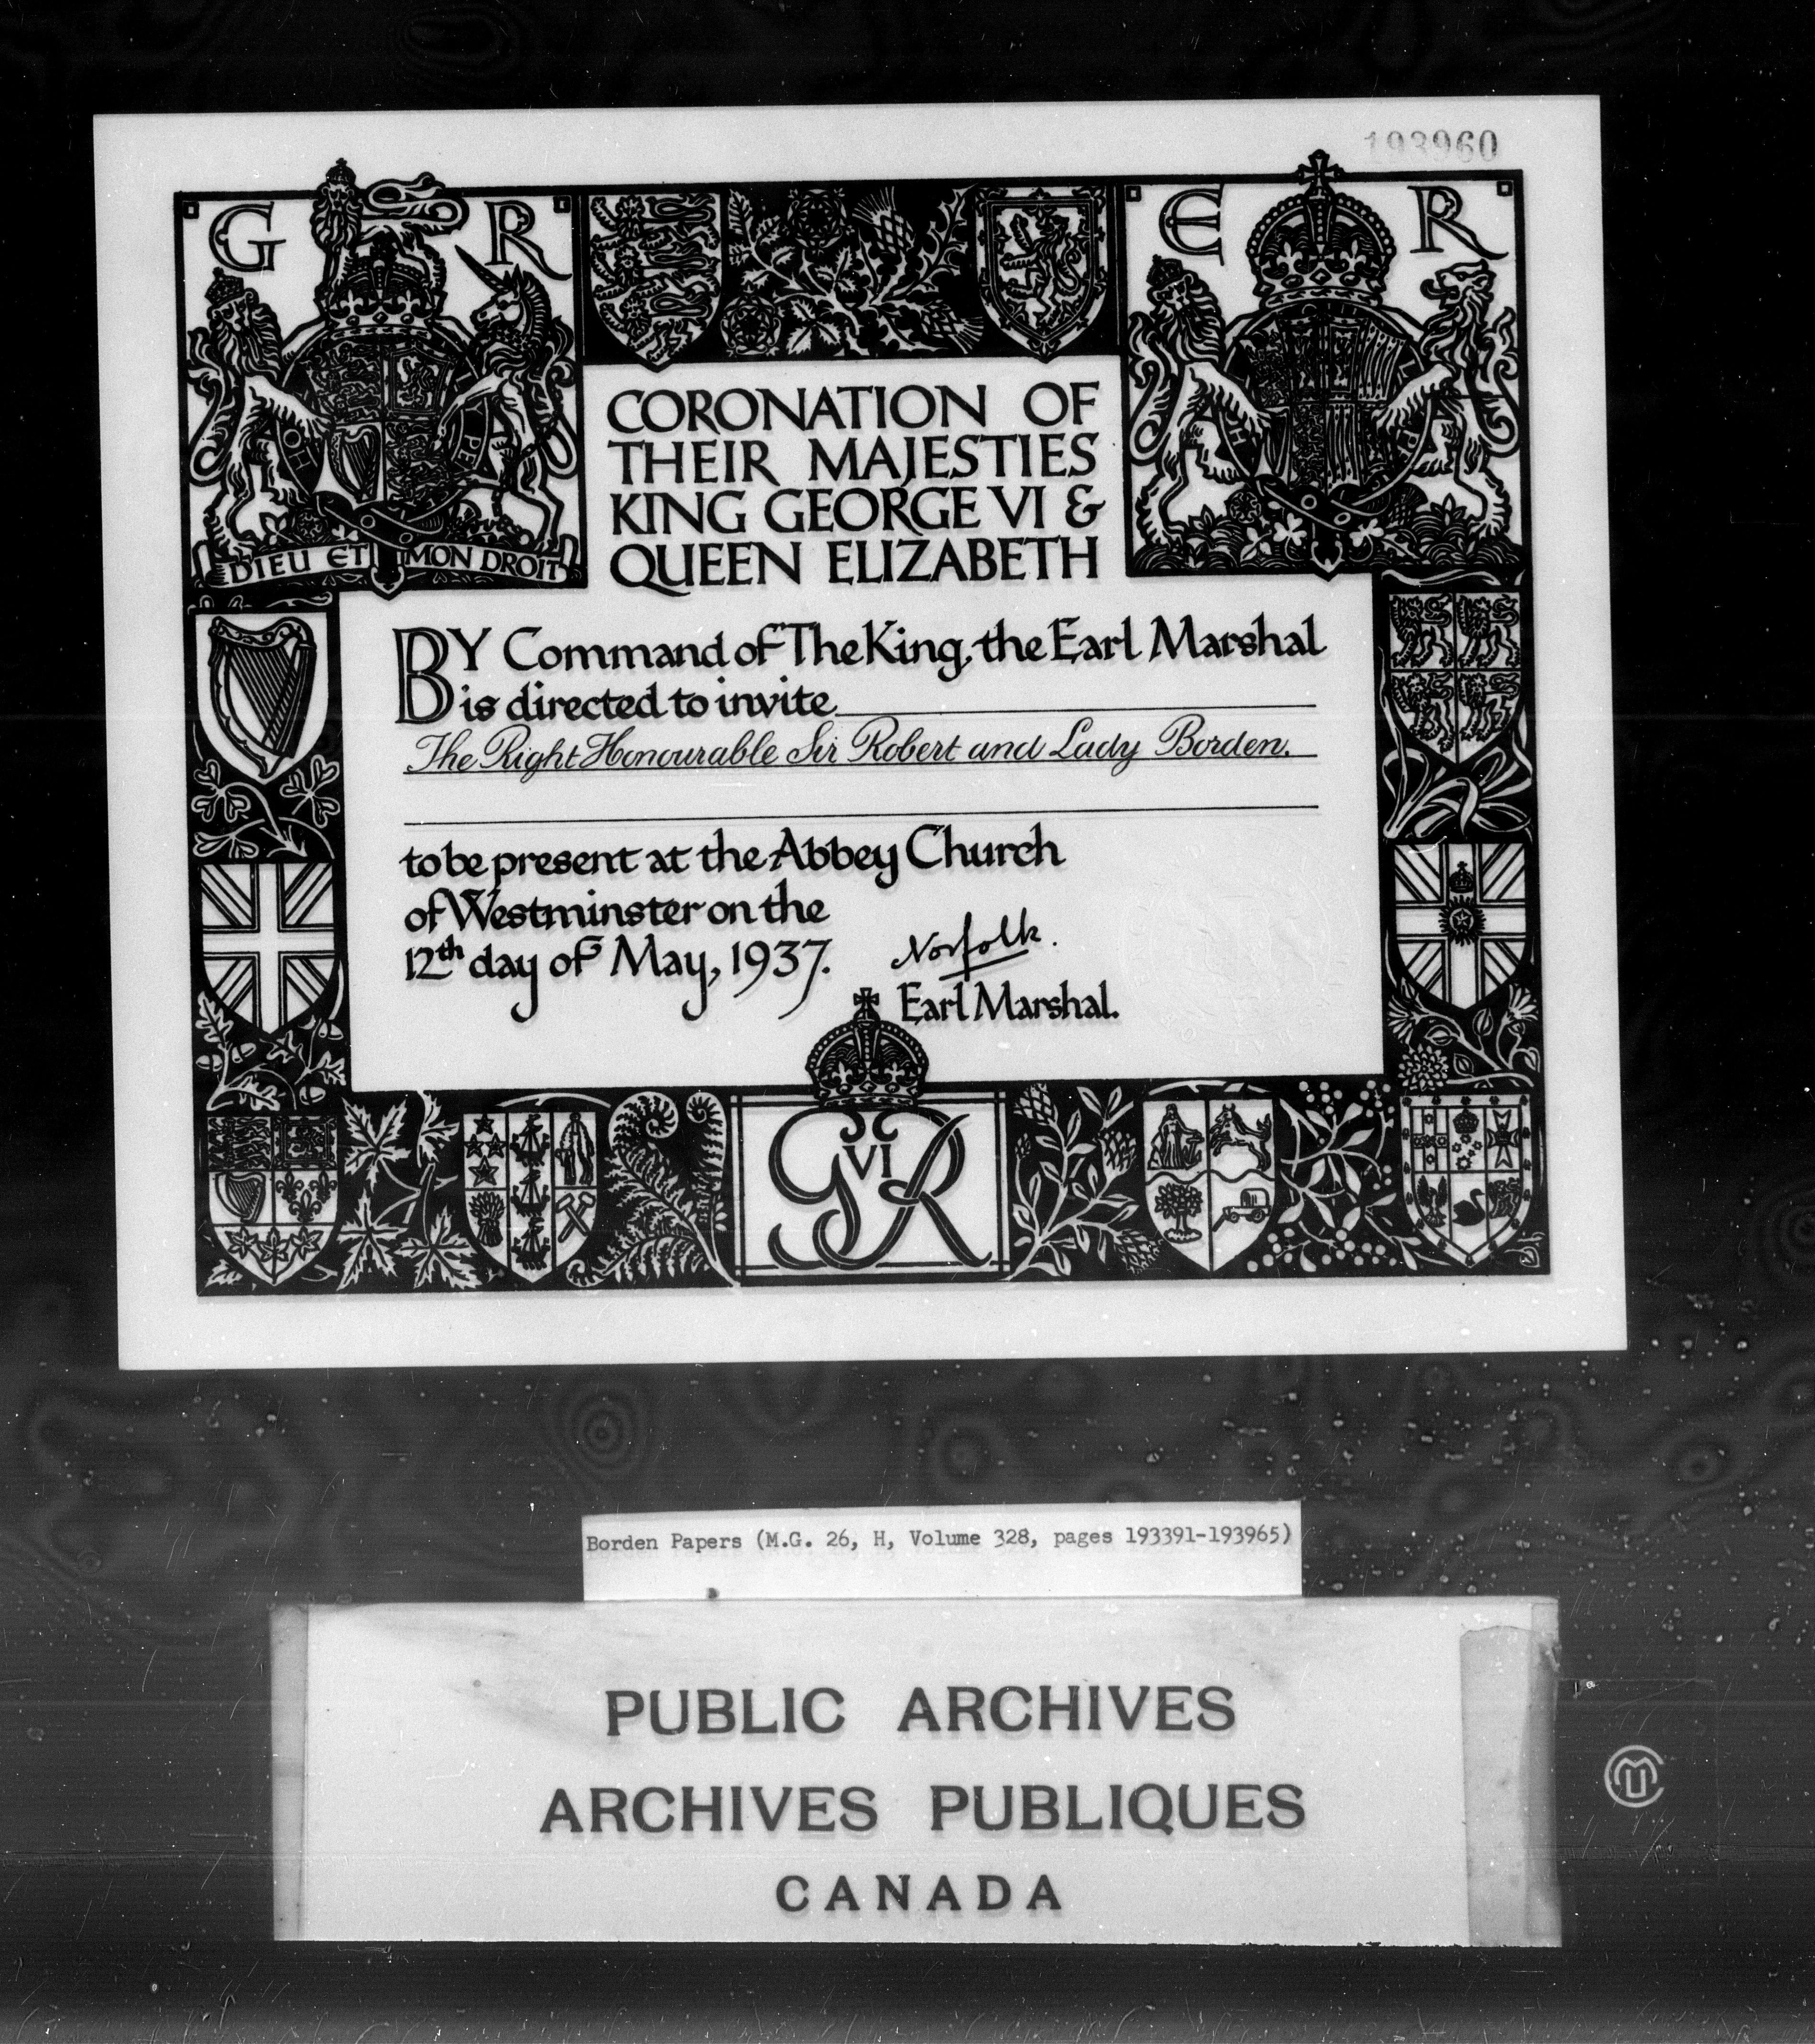 193960
G R
E R
DIEU ET MON DROIT
CORONATION OF
THEIR MAJESTIES
KING GEORGE VI &
QUEEN ELIZABETH
BY Command of The King, the Earl Marshal
is directed to invite
The Right Honourable Sir Robert and Lady Borden.
to be present at the Abbey Church
of Westminster on the
12th day of May, 1937.
Norfolk.
Earl Marshal.
G VI R
Borden Papers (M.G. 26, H, Volume 328, pages 193391-193965)
PUBLIC ARCHIVES
ARCHIVES PUBLIQUES
CANADA